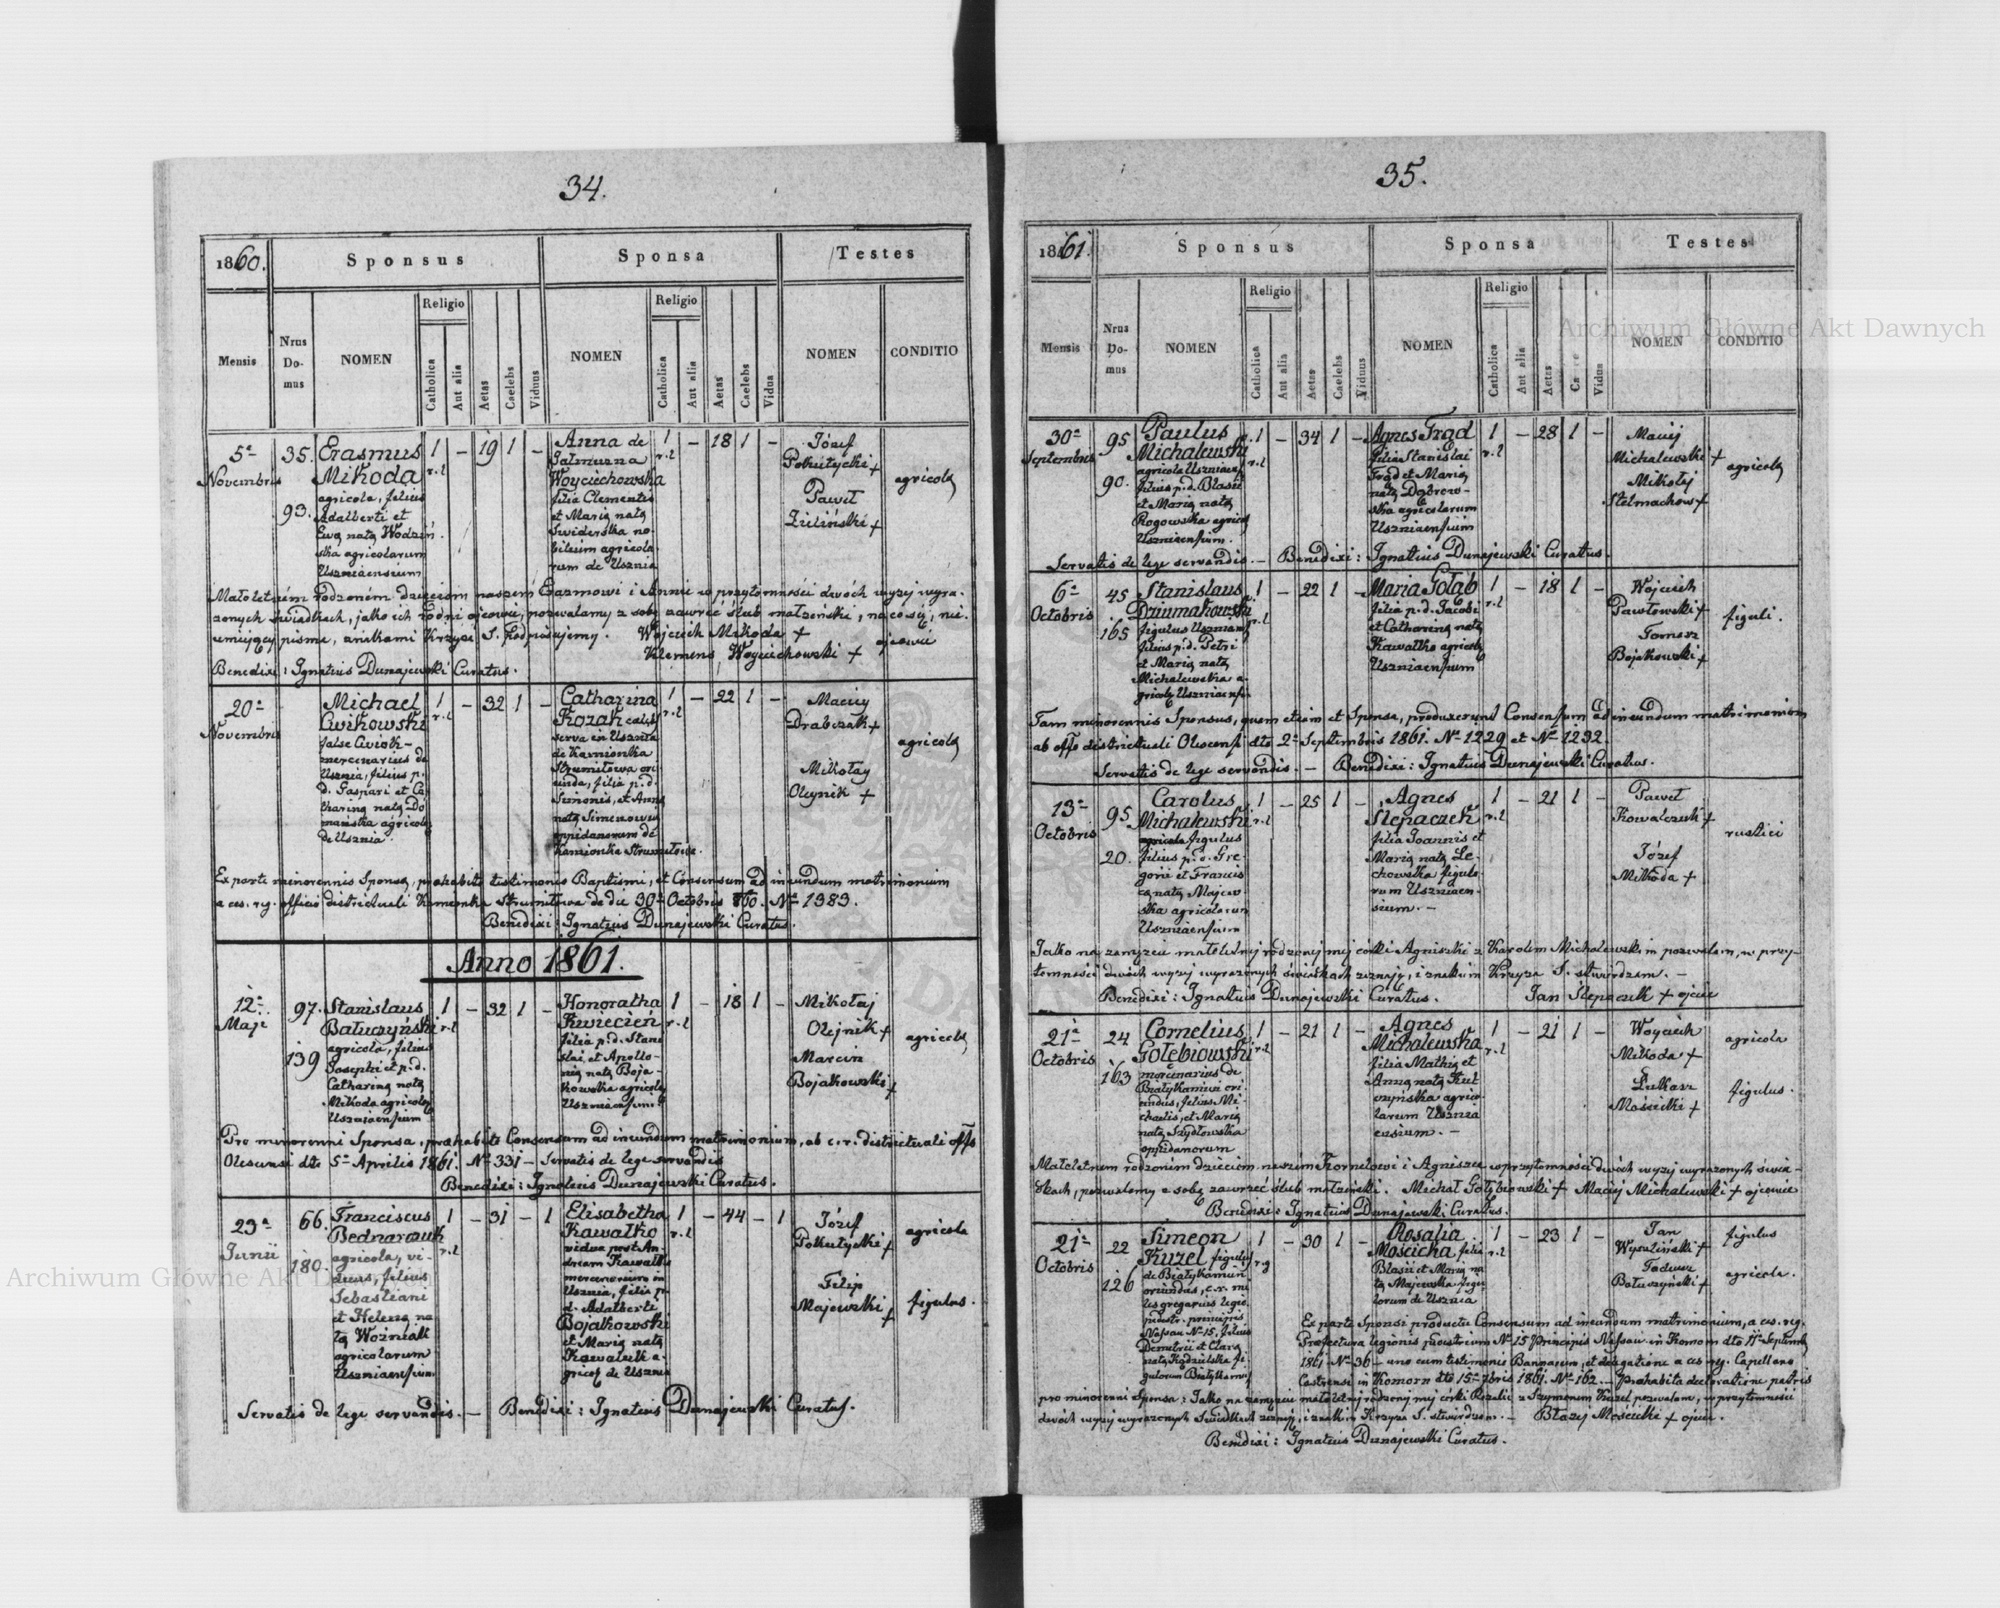 34.
1860.
Sponsus
Sponsa
Testes
Mensis
Nrus Domus
NOMEN
Religio
Catholica
Aut alia
Aetas
Caelebs
Viduus
NOMEN
Religio
Catholica
Aut alia
Aetas
Caelebs
Vidua
NOMEN
CONDITIO
5ª
Novembris
35.
93.
Erasmus
Mikoda
agricola, filius
Adalberti et
Eva nata Wodziń
ska agricolarum
Uszniaensium
1
r.l
–
19
1
–
Anna de
Jałmużna
Woyciechowska
filia Clementis
et Maria nata
Swiderska no-
bilium agricola-
rum de Usznia
1
r.l
–
18
1
–
Józef
Pokutycki +
Paweł
Zieliński +
agricola
Małoletnim rodzoném dzieciom naszém Erazmowi i Annie w przytomności dwóch wyzy wyra-
żonych świadkach, jako ich rodni ojcowie, pozwalamy z sobą zawrzéć ślub małżeński, na co się, nie-
umiejący pisme, znakami Krzyża S. Podpisujemy. Wojciech Mikoda +
Klemens Woyciechowski + ojcowie
Benedixi: Ignatius Dunajewski Curatus.
20ª
Novembris
Michael
Cwikowski
false Cwiok-
mercenarius de
Usznia, filius p.
d. Gaspari et Ca
tharina nata Do
mariska agricola
de Usznia
1
r.l
–
32
1
–
Catharina
Kozak
serva in Usznia
de Kamionka
Strumiłowa ori
unda, filia p.d.
Simonis, et Anna
nata Simenowa
oppidanorum de
Kamionka Strumiłowa.
1
r.l
–
22
1
–
Maciey
Drabczak +
Mikołay
Oleynik +
agricola
Ex parte minorennis Sponsa, prohabito testimonio Baptismi, et Consensum ad ineundum matrimonium
a ces. rg. officio districtuali Kamionka Strumiłowa de die 30ª Octobris 860. Nº 1383.
Benedixi: Ignatius Dunajewski Curatus.
Anno 1861.
12ª
Maji
97.
139
Stanislaus
Batuczyński
agricola, filius
Josephi et p.d.
Catharina nata
Mikoda agricola
Uszniaensium
1
r.l
–
32
1
–
Honoratha
Kwiecień
filia p.d. Stani
slai, et Apollo-
nia nata Boja-
kowska agricola
Uszniaensium
1
r.l
–
18
1
–
Mikołaj
Olejnik +
Marcin
Bojakowski +
agricola
Pro minorenni Sponsa, prohabito Consensum ad ineundum matrimonium, ab c.r. districtuali offo
Olescensi dto 5ª Aprilis 1861. Nº 331 – Servatis de lege servandis
Benedixi: Ignatius Dunajewski Curatus.
23ª
Junii
66.
180.
Franciscus
Bednarczuk
agricola, vi-
duus, filius
Sebastiani
et Helena na
ta Woźniak
agricolarum
Uszniaensium
1
r.l
–
31
–
1
Elisabetha
Kawałko
vidua post An-
dream Kawałko
mercenarium in
Usznia, filia p.
d. Adalberti
Bojakowski
et Maria nata
Kawałek a-
gricol de Usznia
1
r.l
–
44
–
1
Józef
Pokutycki +
Filip
Majewski +
agricola
figulus.
Servatis de lege servandis. – Benedixi: Ignatius Dunajewski Curatus.
35.
1861.
Sponsus
Sponsa
Testes
Mensis
Nrus Domus
NOMEN
Religio
Catholica
Aut alia
Aetas
Caelebs
Viduus
NOMEN
Religio
Catholica
Aut alia
Aetas
Vidua
NOMEN
CONDITIO
30ª
Septembris
95
90.
Paulus
Michalewski
agricola Uszniaens
filius p.d. Blasii
et Maria nata
Rogowska agricol
Uszniaensium.
1
r.l
–
34
1
–
Agnes Frąd
filia Stanislai
Frąd et Maria
nata Dąbrow-
ska agricolarum
Uszniaensium
1
r.l
–
28
1
–
Maciej
Michalewski +
Mikołaj
Stelmachow +
agricola
Servatis de lege servandis. – Benedixi: Ignatius Dunajewski Curatus.
6ª
Octobris
45
165
Stanislaus
Dziumakowski
figulus Uszniaens
filius p.d. Petri
et Maria nata
Michalewska a-
gricola Uszniaens.
1
r.l
–
22
1
–
Maria Gołąb
filia p.d. Jacobi
et Catharina nata
Kawałko agricola
Uszniaensium
1
r.l
–
18
1
–
Wojciech
Pawłowski +
Tomasz
Bojakowski +
figuli.
Tam minorennis Sponsus, quam etiam et Sponsa, produxerunt Consensum ad ineundum matrimonium
ab offo districtuali Olescensi dto 2ª Septembris 1861. Nº 1229 et Nº 1232.
Servatis de lege servandis. – Benedixi: Ignatius Dunajewski Curatus.
13ª
Octobris
95
20.
Carolus
Michalewski
figulus
filius p.d. Gre-
gorii et Francis
ca nata Majew-
ska agricolarum
Uszniaensium
1
r.l
–
25
1
–
Agnes
Slepaczek
filia Joannis et
Maria nata Le-
chowska figulo-
rum Uszniaen-
sium. –
1
r.l
–
21
1
–
Paweł
Kowalczuk +
Józef
Mikoda +
rustici
Jako na zamężcie małoletniej rodzonej mej córki Agniszki z Karolem Michalewskim pozwalam, w przy-
tomności dwóch wyzej wyrażonych świadkach zeznaję, i znakiem Krzyża S. stwierdzam. –
Benedixi: Ignatius Dunajewski Curatus.
Jan Slepaczek + ojciec
21ª
Octobris
24
163
Cornelius
Gołębiowski
mercenarius de
Białykamień ori-
undus, filius Mi-
chaelis, et Maria
nata Szydłowska
oppidanorum
1
r.l
–
21
1
–
Agnes
Michalewska
filia Mathia et
Anna nata Kul
czyńska agrico-
larum Usznia
ensium. –
1
r.l
–
21
1
–
Woyciech
Mikoda +
Łukasz
Mościcki +
agricola
figulus.
Małoletnim rodzoném dzieciem naszém Kornelowi i Agniszce w przytomności dwóch wyzej wyrażonych świa-
dkach, pozwalamy z sobą zawrzéć ślub małżeński. Michał Gołębiowski + Maciej Michalewski + ojcowie
Benedixi: Ignatius Dunajewski Curatus.
21ª
Octobris
22
126
Simeon
Kuzel figulus
de Białykamień
oriundus, c.r. mi
les gregarius legio.
pedestr. principis
Nassau Nº 15, filius
Demetrii et Clara
nata Kędzielska fi-
gulorum Białykamie
1
r.g
–
30
1
–
Rosalia
Mościcka filia
Blasii et Maria na
ta Majewska figu-
lorum de Usznia
1
r.l
–
23
1
–
Jan
Wysoliński +
Tadeusz
Batuczyński +
figulus
agricola.
Ex parte Sponsi productu Consensum ad ineundum matrimonium, a ces. rg.
Prefectura legionis pedestrium Nº 15 Principis Nassau in Komorn dto 11ª Septemb
1861 Nº 36 – una cum testimonio Bannorum, et delegatione a ces rg. Capellano
Castrensi in Komorn dto 15ª 7bris 1861. Nº 162. – Prohabita declaratione patris
pro minorenni Sponsa: Jako na zamężcie małoletniej rodzonej mej córki Rozalii z Szymonem Kuzel pozwalam, w przytomności
dwóch wyzej wyrażonych Świadkach zeznaję, i znakiem Krzyża S. stwierdzam. – Błażej Mościcki + ojciec.
Benedixi: Ignatius Dunajewski Curatus.
Archiwum Główne Akt Dawnych
Archiwum Główne Akt Dawnych